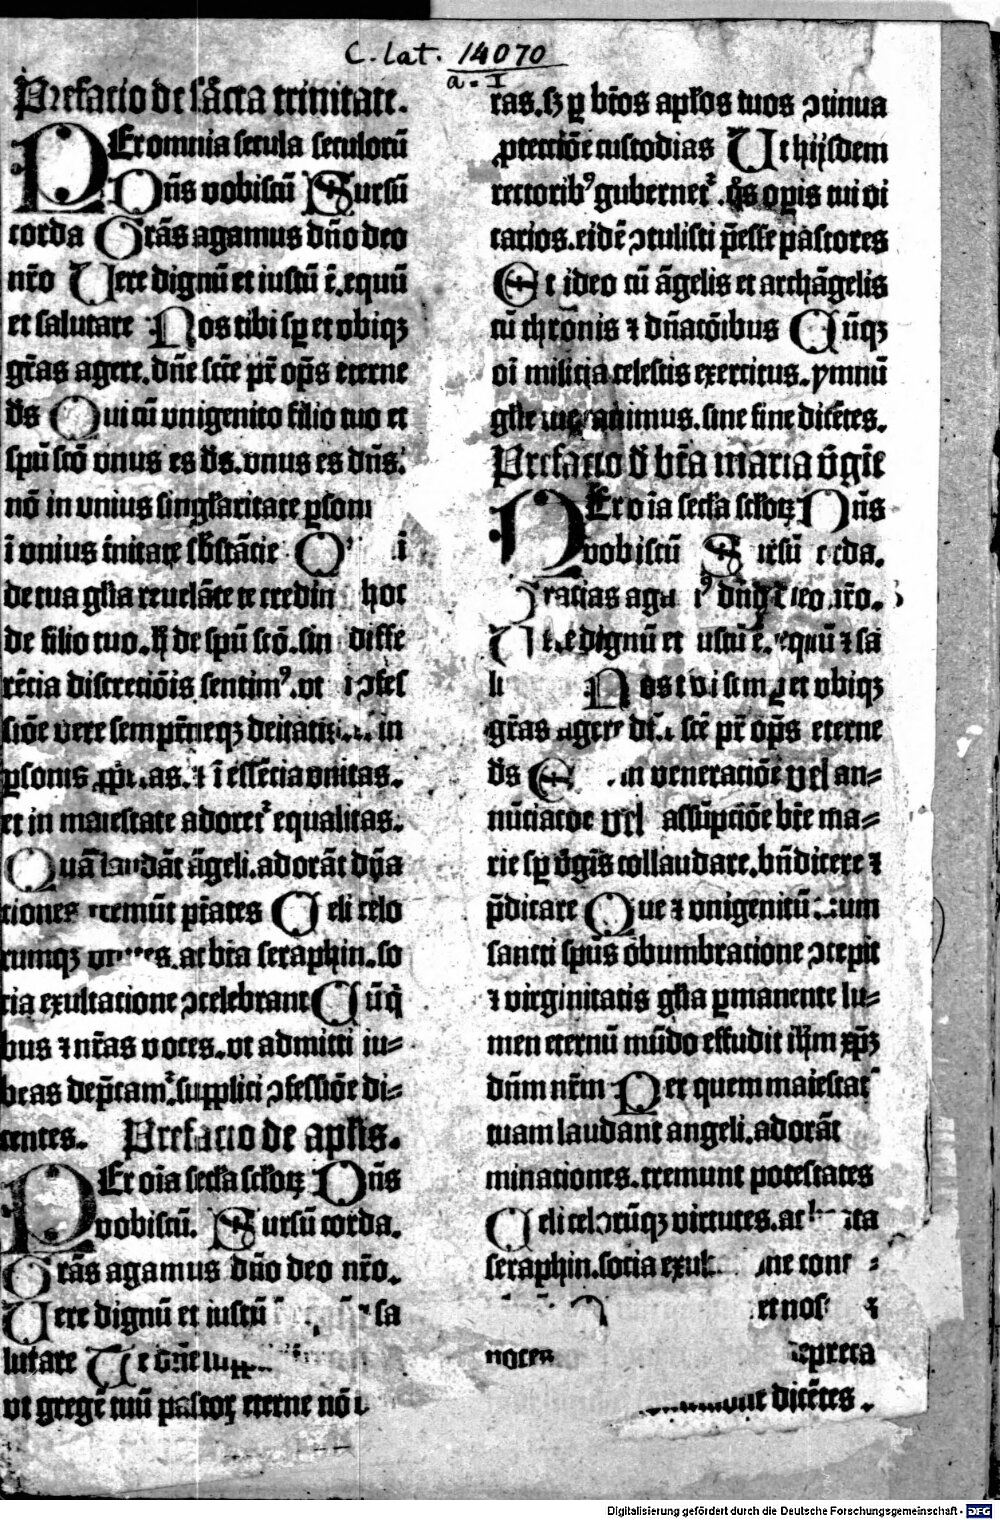 C. lat. 14070
a. I
Prefacio de sācta trinitate.
PEr omnia secula seculorū
Dn̄s vobiscū Sursū
corda Grās agamus dn̄o deo
nr̄o Uere dignū et iustū ē. equū
et salutare Nos tibi sꝑ et vbiqꝫ
gr̄as agere. dn̄e sc̄te pr̄ op̄s eterne
d̄s Qui cū vnigenito filio tuo et
spū sctō vnus es d̄s. vnus es dn̄s.
nō in vnius singl̄aritate ꝑson
ī vnius t̄nitate sb̄stācie Q
de tua gl̄ia reuelāte te credim hoc
de filio tuo. hͦ de spū sctō. sin diffe
rēcia discreciōis sentimꝰ. vt ī ↄfes
siōe vere sempr̄neqꝫ deitatis in
ꝑsonis ꝓp̄ as. ⁊ ī essēcia vnitas.
et in maiestate adoretᷣ equalitas.
Quā laudāt āgeli. adorāt dn̄a
tiones tremūt pr̄ates Celi celo
rumqꝫ es. ac bt̄a seraphin. so
cia exultacione ↄcelebrant Cū q̄
bus ⁊ nr̄as voces. vt admitti iu⸗
beas dep̄camᷣ. supplici ↄfessiōe di⸗
centes. Prefacio de apl̄is.
PEr oīa secl̄a scl̄oꝝ Dn̄s
vobiscū. Sursū corda.
Grās agamus dn̄o deo nr̄o.
Uere dignū et iustū sa
lutare Te dn̄e
vt gregē tuū pastor eterne nō
ras. sꝫ ꝑ bt̄os apl̄os tuos ↄtinua
ꝓtecciōe custodias Ut hijsdem
rectoribꝰ gubernetᷣ. q̄s oꝑis tui vi
carios. eidē ↄtulisti p̄esse pastores
Et ideo cū āgelis et archāgelis
cū thronis ⁊ dn̄acōibus Cūqꝫ
oī milicia celestis exercitus. ymnū
gl̄ie canimus. sine fine dicētes.
Prefacio d̄ bt̄a maria v̄gīe
PEr oīa secl̄a scl̄oꝝ Dn̄s
vobiscū Sursū corda.
Gracias aga dn̄o deo nr̄o.
dignū et iustū ē. equū ⁊ sa
Nos tibi semꝑ et vbiqꝫ
gr̄as agere sctē pr̄ op̄s eterne
d̄s Et in veneraciōe vel an⸗
nūciacōe vel assūpciōe bt̄e ma⸗
rie sꝑ v̄gīs collaudare. bn̄dicere ⁊
p̄dicare Que ⁊ vnigenitū tuum
sancti spūs obumbracione ↄcepit
⁊ virginitatis gl̄ia ꝑmanente lu⸗
men eternū mūdo effudit ih̄m xp̄ꝫ
dn̄m nr̄m Per quem maiestat
tuam laudant angeli. adorāt
minationes. tremunt potestates
Celi celorūqꝫ virtutes. ac
seraphin. socia
et nos
noces depreca
dicētes.
Digitalisierung gefördert durch die Deutsche Forschungsgemeinschaft - DFG